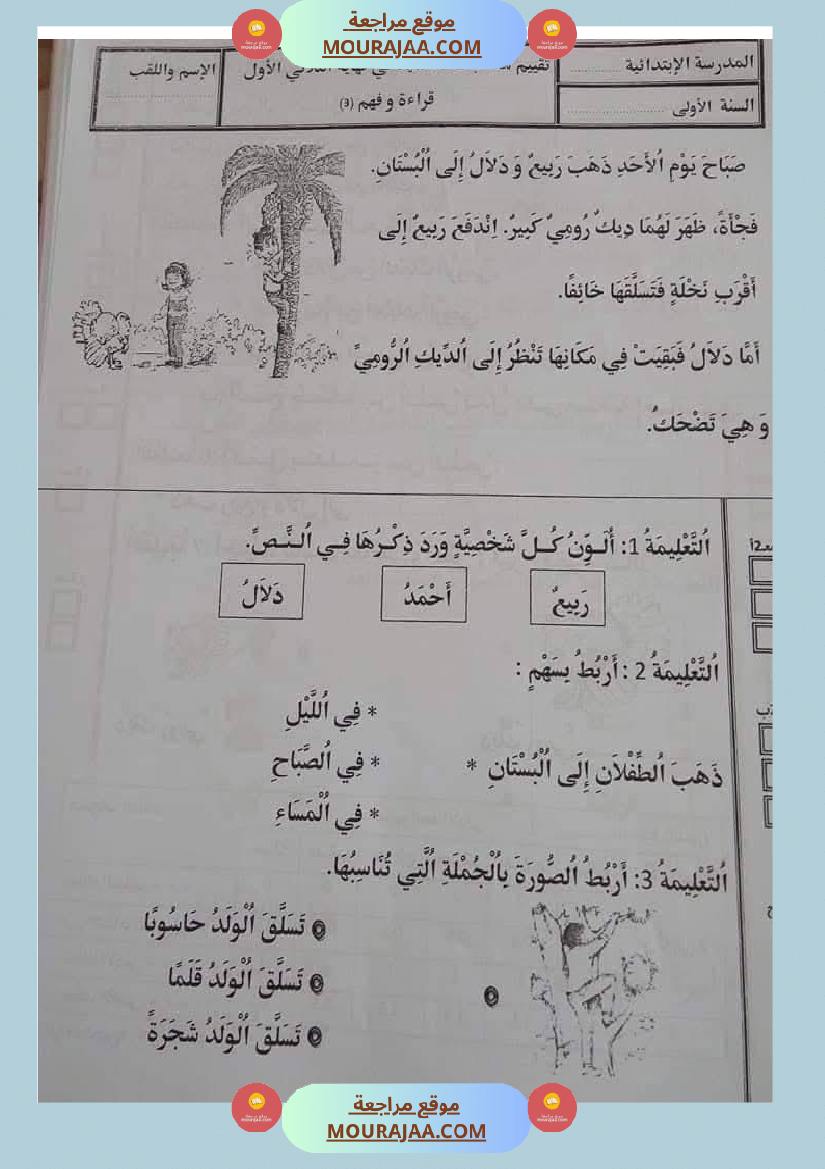 موقع مراجعة
MOURAJAA.COM
المدرسة الإبتدائية
السنة الأولى
تقييم
نهاية الثلاثي الأول
قراءة و فهم (3)
الإسم واللقب
صَبَاحَ يَوْمِ اُلأَحَدِ ذَهَبَ رَبِيعٌ وَ دَلاَلُ إِلَى اُلْبُسْتَانِ.
فَجْأَةً، ظَهَرَ لَهُمَا دِيكٌ رُومِيٌّ كَبِيرٌ. اِنْدَفَعَ رَبِيعٌ إِلَى
أَقْرَبِ نَخْلَةٍ فَتَسَلَّقَهَا خَائِفًا.
أَمَّا دَلاَلُ فَبَقِيَتْ فِي مَكَانِهَا تَنْظُرُ إِلَى اُلدِّيكِ اُلرُّومِيِّ
وَ هِيَ تَضْحَكُ.
اُلتَّعْلِيمَةُ 1: أُلَـوِّنُ كُــلَّ شَخْصِيَّةٍ وَرَدَ ذِكْـرُهَا فِـي اُلـنَّـصِّ.
رَبِيعٌ
أَحْمَدُ
دَلاَلُ
اُلتَّعْلِيمَةُ 2 : أَرْبُطُ بِسَهْمٍ :
* فِي اُللَّيْلِ
ذَهَبَ اُلطِّفْلاَنِ إِلَى اُلْبُسْتَانِ * * فِي اُلصَّبَاحِ
* فِي اُلْمَسَاءِ
اُلتَّعْلِيمَةُ 3: أَرْبُطُ اُلصُّورَةَ بِاُلْجُمْلَةِ اُلَّتِي تُنَاسِبُهَا.
تَسَلَّقَ اُلْوَلَدُ حَاسُوبًا
تَسَلَّقَ اُلْوَلَدُ قَلَمًا
تَسَلَّقَ اُلْوَلَدُ شَجَرَةً
موقع مراجعة
MOURAJAA.COM